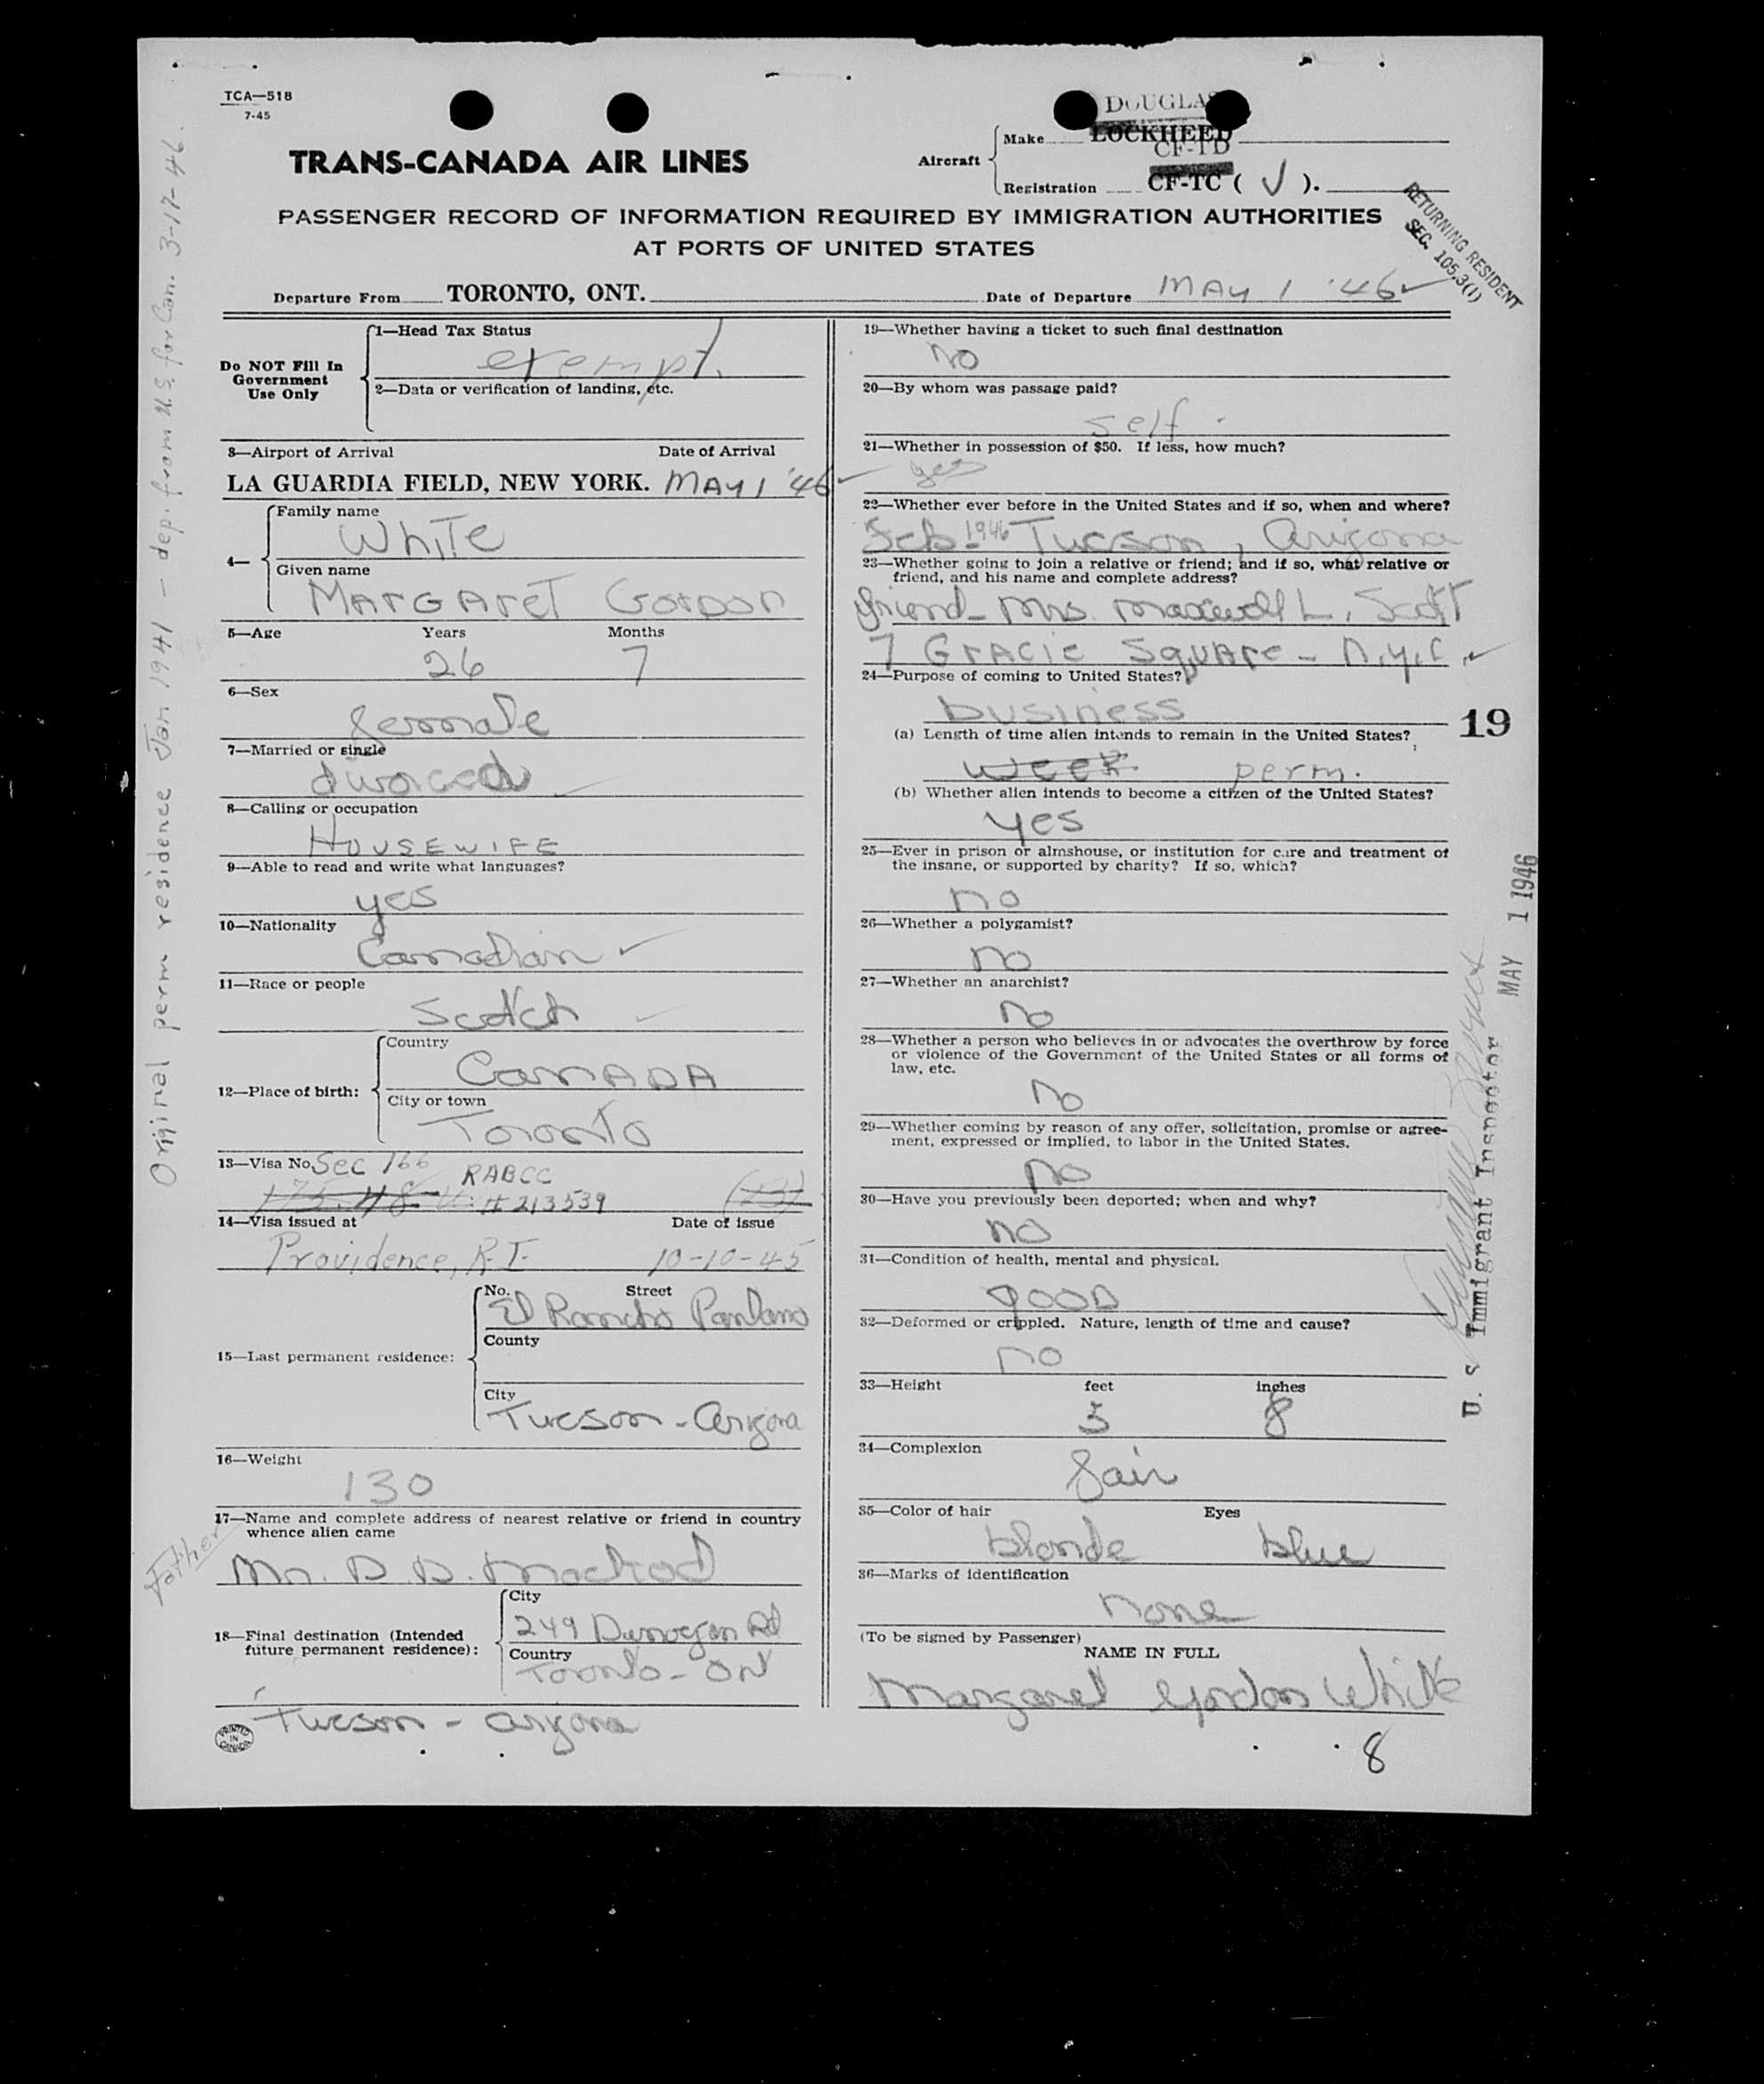 TCA—518
7-45
TRANS-CANADA AIR LINES
DOUGLAS
Aircraft
Make LOCKHEED
CF-TD
Registration CF-TC ( V ).
PASSENGER RECORD OF INFORMATION REQUIRED BY IMMIGRATION AUTHORITIES
AT PORTS OF UNITED STATES
RETURNING RESIDENT
SEC. 105.3(1)
Departure From TORONTO, ONT. Date of Departure MAY 1 '46
Original perm residence Jan 1941 - dep. from U.S. for Can. 3-17-46.
Do NOT Fill In
Government
Use Only
1—Head Tax Status
exempt.
2—Data or verification of landing, etc.
3—Airport of Arrival Date of Arrival
LA GUARDIA FIELD, NEW YORK. MAY 1 '46
4— Family name
White
Given name
Margaret Gordon
5—Age Years Months
26 7
6—Sex
female
7—Married or single
divorced
8—Calling or occupation
HOUSEWIFE
9—Able to read and write what languages?
yes
10—Nationality
Canadian
11—Race or people
Scotch
12—Place of birth:
Country
CANADA
City or town
Toronto
13—Visa No. Sec 166 RABCC
175.48 # 213539
14—Visa issued at Date of issue
Providence, R.I. 10-10-45
15—Last permanent residence:
No. Street
El Rancho Pantano
County
City
Tucson - Arizona
16—Weight
130
17—Name and complete address of nearest relative or friend in country
whence alien came
Father
Mr. D. D.
18—Final destination (Intended
future permanent residence):
City
249 Dunvegan Rd
Country
Toronto - Ont
Tucson - Arizona
PRINTED
IN
CANADA
19—Whether having a ticket to such final destination
no
20—By whom was passage paid?
self.
21—Whether in possession of $50. If less, how much?
yes
22—Whether ever before in the United States and if so, when and where?
Feb. 1946 Tucson, Arizona
23—Whether going to join a relative or friend; and if so, what relative or
friend, and his name and complete address?
friend - Mrs. Maxwell L. Scott
7 Gracie Square - N.Y.C.
24—Purpose of coming to United States?
business
(a) Length of time alien intends to remain in the United States?
week perm.
(b) Whether alien intends to become a citizen of the United States?
yes
25—Ever in prison or almshouse, or institution for care and treatment of
the insane, or supported by charity? If so, which?
no
26—Whether a polygamist?
no
27—Whether an anarchist?
no
28—Whether a person who believes in or advocates the overthrow by force
or violence of the Government of the United States or all forms of
law, etc.
no
29—Whether coming by reason of any offer, solicitation, promise or agree-
ment, expressed or implied, to labor in the United States.
no
30—Have you previously been deported; when and why?
no
31—Condition of health, mental and physical.
good
32—Deformed or crippled. Nature, length of time and cause?
no
33—Height feet inches
5 8
34—Complexion
fair
35—Color of hair Eyes
blonde blue
36—Marks of identification
none
(To be signed by Passenger)
NAME IN FULL
Margaret Gordon White
8
19
MAY 1 1946
U. S. Immigrant Inspector